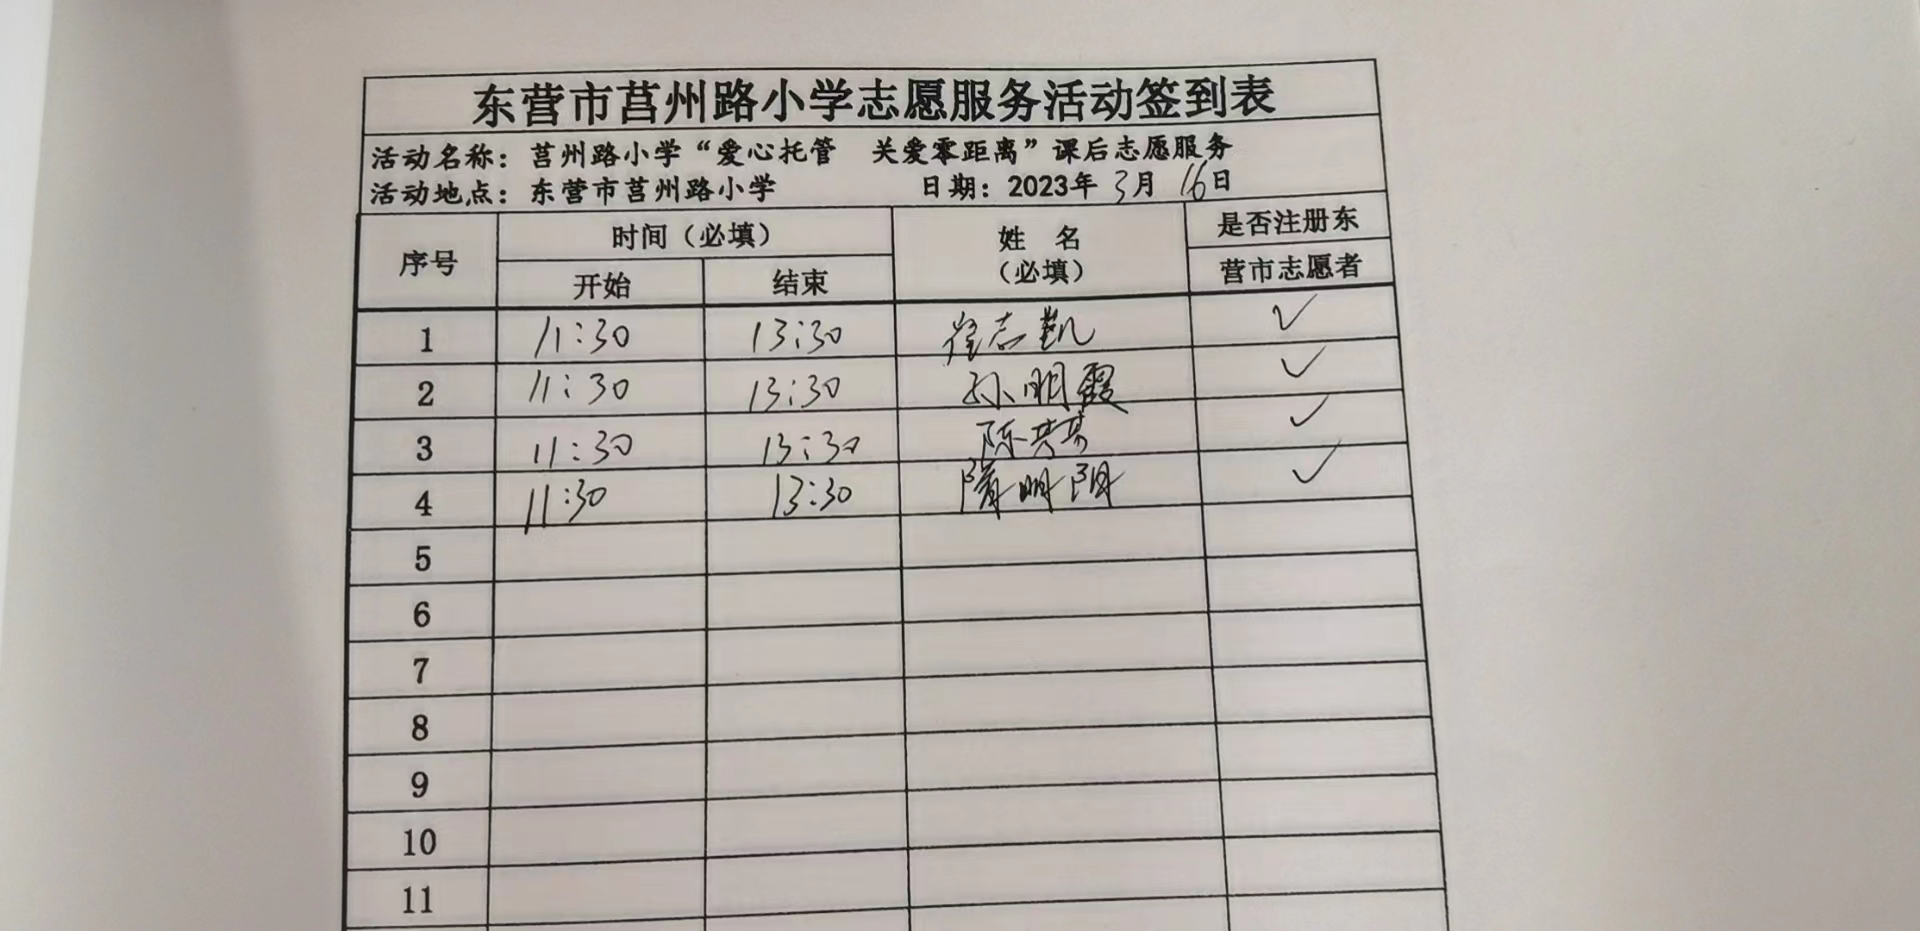 东营市莒州路小学志愿服务活动签到表
活动名称：莒州路小学“爱心托管 关爱零距离”课后志愿服务
活动地点：东营市莒州路小学 日期：2023年3月16日
序号 时间（必填） 姓 名（必填） 是否注册东营市志愿者
开始 结束
1 11:30 13:30 崔志凯 ✓
2 11:30 13:30 孙明霞 ✓
3 11:30 13:30 陈 ✓
4 11:30 13:30 隋明阳 ✓
5
6
7
8
9
10
11